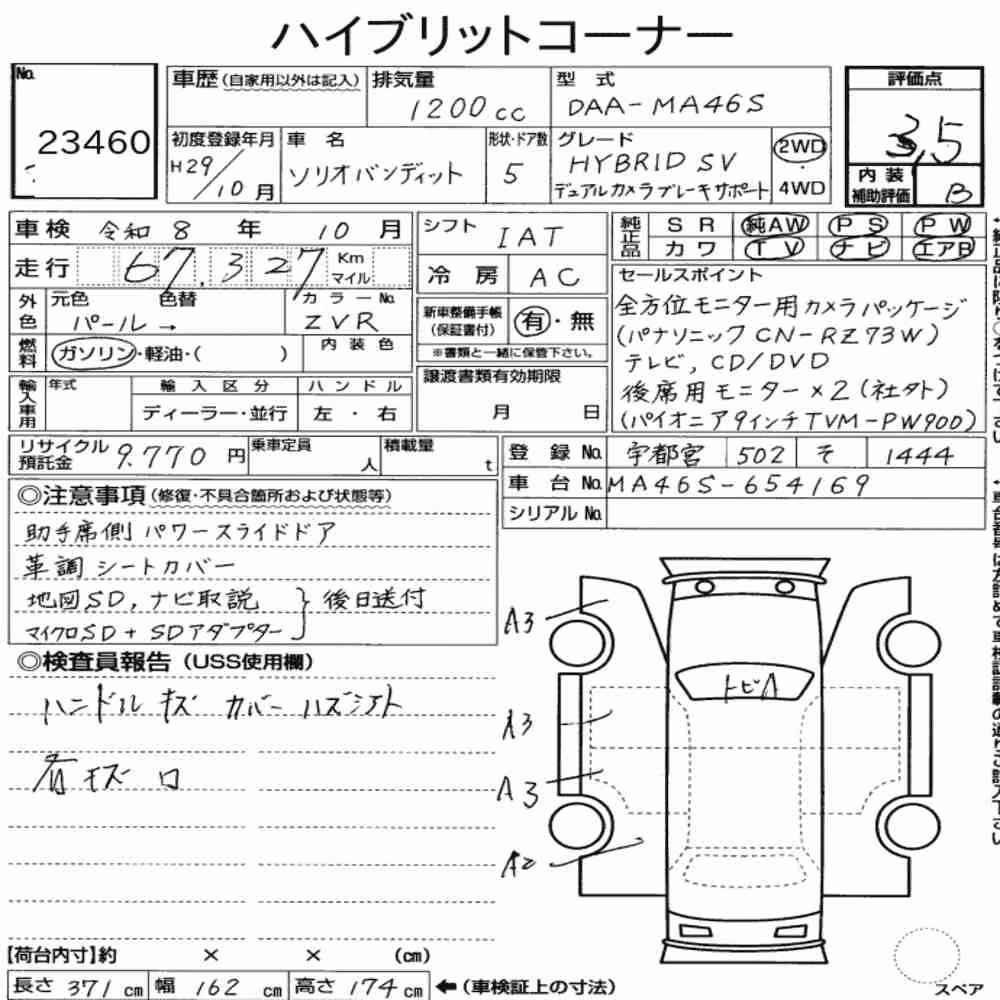 ハイブリットコーナー
No.
23460
車歴(自家用以外は記入)
排気量
1200cc
型 式
DAA-MA46S
初度登録年月
H29/10月
車 名
ソリオバンディット
形状・ドア数
5
グレード
HYBRID SV
デュアルカメラブレーキサポート
2WD
4WD
評価点
3.5
内装
補助評価
B
車検 令和 8 年 10 月
走行 67,327 Km
マイル
シフト IAT
冷房 AC
純正品 SR 純AW PS PW
カワ TV ナビ エアB
外色
元色 色替
パール→
カラーNo.
ZVR
燃料
ガソリン・軽油・( )
内装色
新車整備手帳
(保証書付)
有・無
※書類と一緒に保管下さい。
セールスポイント
全方位モニター用カメラパッケージ
(パナソニックCN-RZ73W)
テレビ, CD/DVD
後席用モニター×2(社外)
(パイオニア9インチTVM-PW900)
輸入車用
年式
輸入区分
ディーラー・並行
ハンドル
左・右
譲渡書類有効期限
月 日
リサイクル
預託金
9.770円
乗車定員
人
積載量
t
登録No. 宇都宮 502 そ 1444
車台No. MA46S-654169
シリアルNo.
◎注意事項(修復・不具合箇所および状態等)
助手席側パワースライドドア
革調シートカバー
地図SD, ナビ取説
マイクロSD+SDアダプター
後日送付
◎検査員報告(USS使用欄)
ハンドルキズ カバーハズシアト
A3
A3
A3
A2
トビA
【荷台内寸】約 × × (cm)
長さ 371 cm 幅 162 cm 高さ 174 cm ←(車検証上の寸法)
スペア